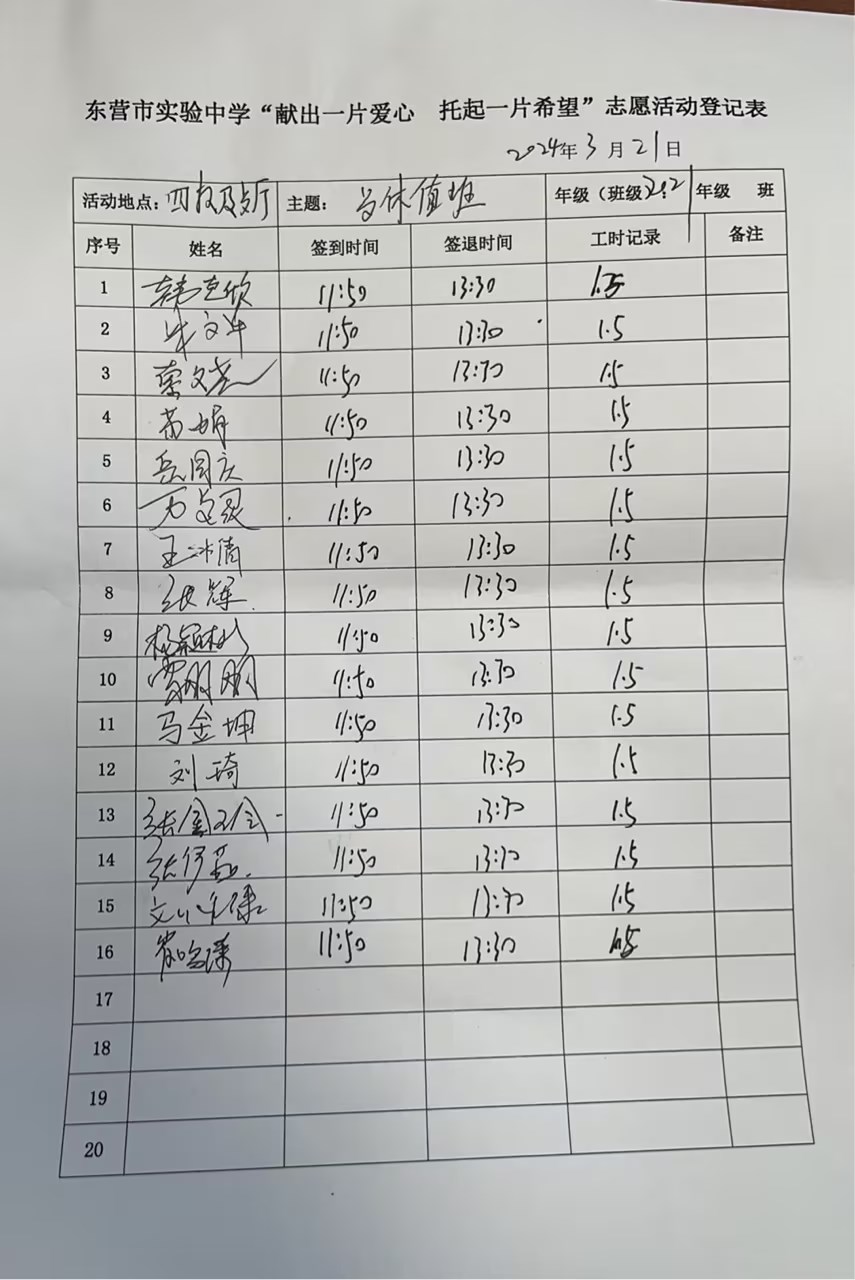 东营市实验中学“献出一片爱心 托起一片希望”志愿活动登记表
2024年3月21日
活动地点: 四校及餐厅 主题: 午休值班 年级(班级) 2022 年级 班
序号 姓名 签到时间 签退时间 工时记录 备注
1 韩克欣 11:50 13:30 1.5
2 牛文华 11:50 13:30 1.5
3 荣文 11:50 13:30 1.5
4 苗娟 11:50 13:30 1.5
5 岳国庆 11:50 13:30 1.5
6 11:50 13:30 1.5
7 王冰清 11:50 13:30 1.5
8 张辉 11:50 13:30 1.5
9 杨颖 11:50 13:30 1.5
10 贾明明 11:50 13:30 1.5
11 马金坤 11:50 13:30 1.5
12 刘琦 11:50 13:30 1.5
13 张 11:50 13:30 1.5
14 张 11:50 13:30 1.5
15 11:50 13:30 1.5
16 11:50 13:30 1.5
17
18
19
20